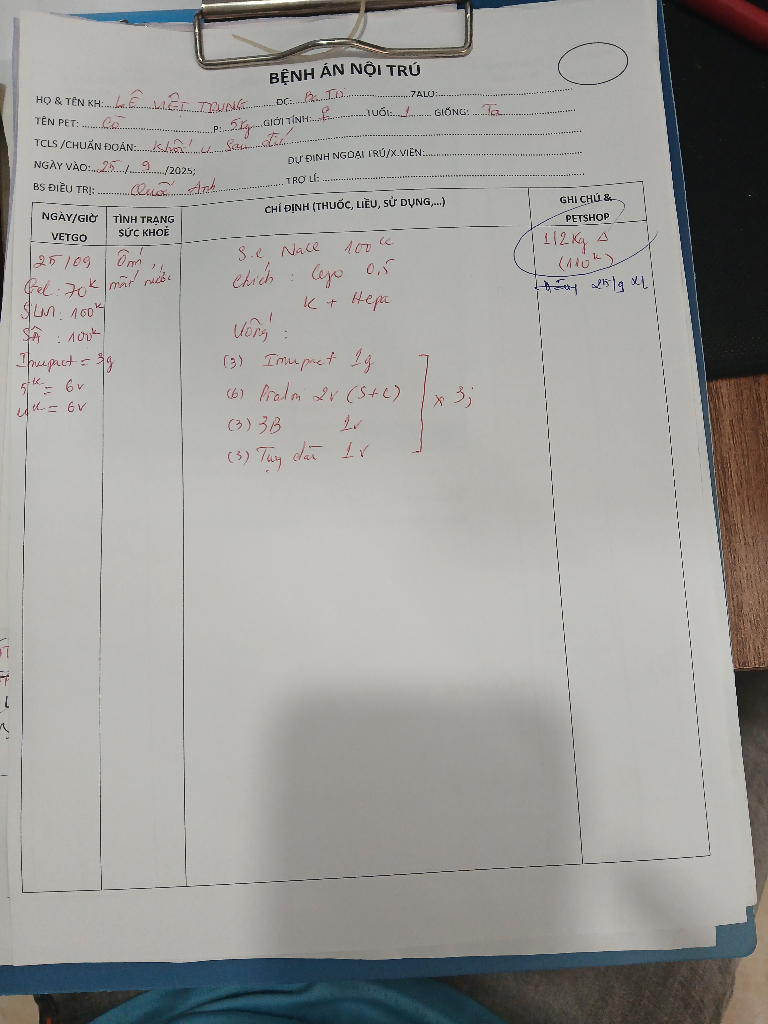 BỆNH ÁN NỘI TRÚ
HỌ & TÊN KH: LÊ VIỆT TRUNG ĐC: ZALO:
TÊN PET: Cò P: 5kg GIỚI TÍNH: TUỔI: 1 GIỐNG: Ta
TCLS /CHUẨN ĐOÁN: Khối u sau
NGÀY VÀO: 25 / 9 /2025; DỰ ĐỊNH NGOẠI TRÚ/X.VIỆN:
BS ĐIỀU TRỊ: Quốc Anh TRỢ LÍ:
NGÀY/GIỜ VETGO
TÌNH TRẠNG SỨC KHOẺ
CHỈ ĐỊNH (THUỐC, LIỀU, SỬ DỤNG,...)
GHI CHÚ & PETSHOP
25/09
Gel: 70k
SLM: 100k
SÂ: 100k
Imupact = 3g
5k = 6v
4k = 6v
Ốm,
mất nước
S.C NaCl 100cc
chích: 0,5
K + Hepa
Uống:
(3) Imupact 1g
(6) 2v (S+C)
(3) 3B 1v
(3) Tuỵ 1v
x 3
1/2kg
(110k)
25/9